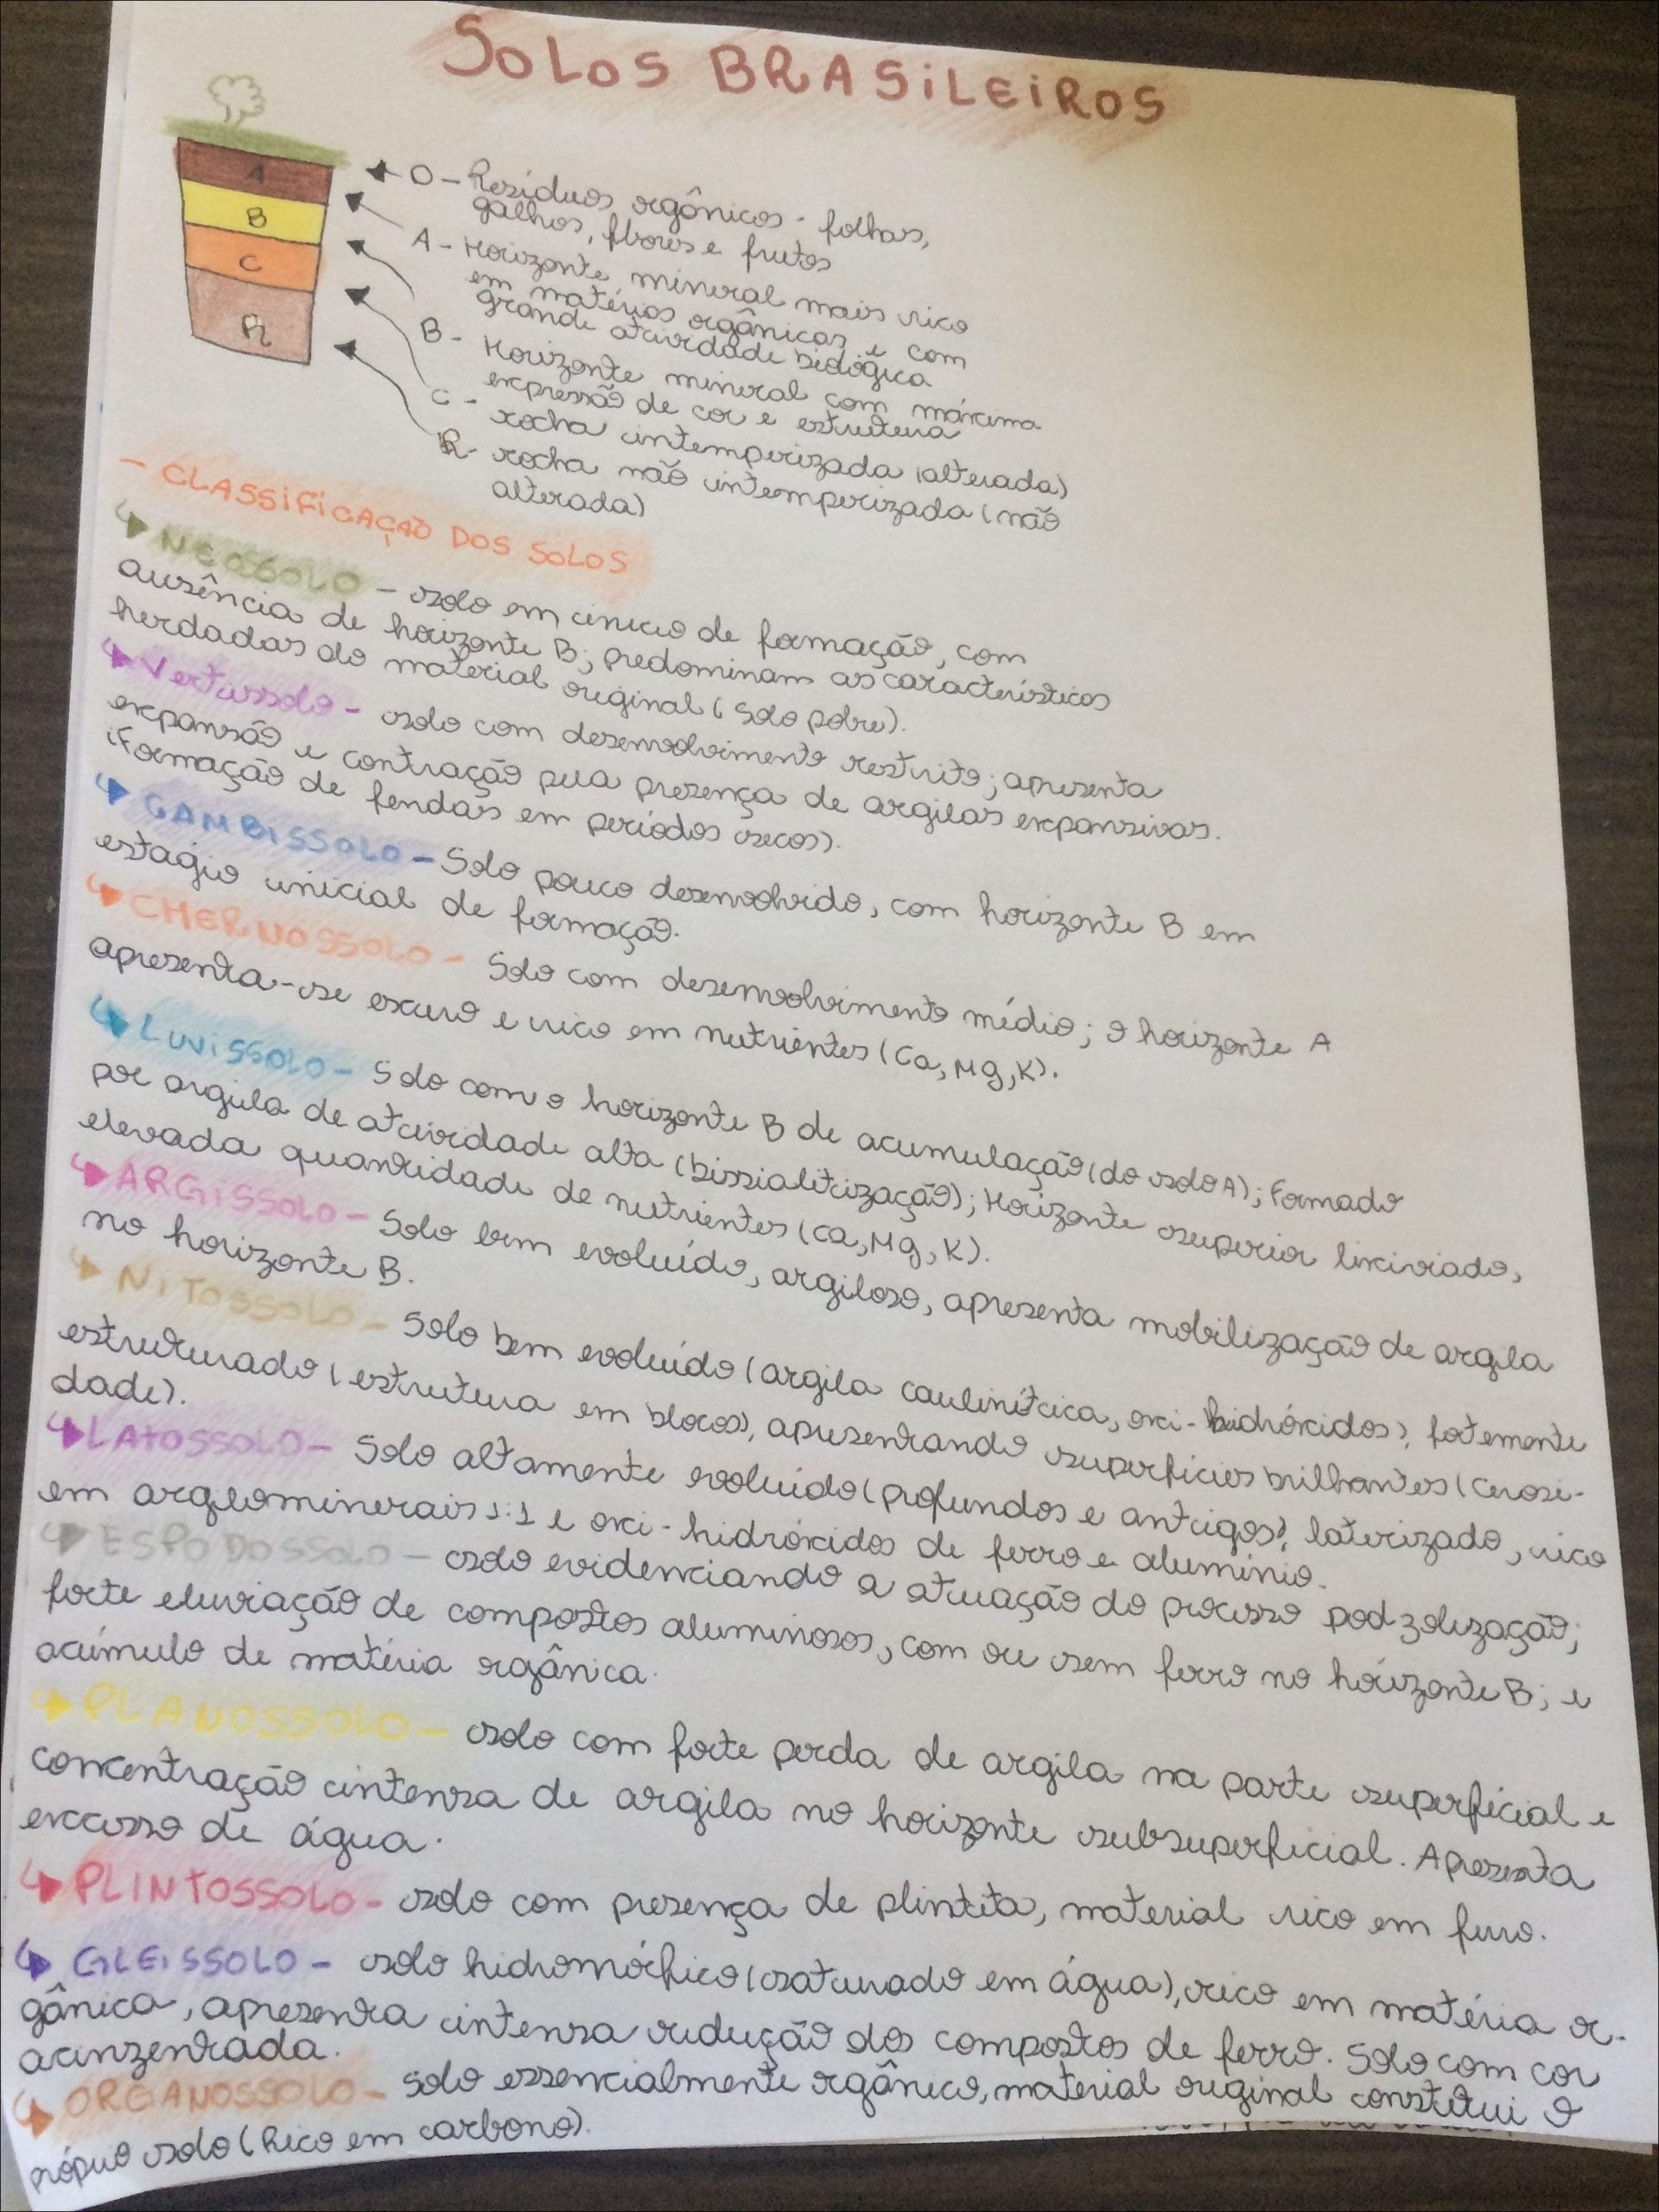 SOLOS BRASiLEiROS
A
B
C
R
O - Resíduos orgânicos - folhas,
galhos, flores e frutos
A - Horizonte mineral mais rico
em matérias orgânicas e com
grande atividade biológica
B - Horizonte mineral com máxima
expressão de cor e estrutura
C - rocha intemperizada (alterada)
R - rocha não intemperizada (não
alterada)
- CLASSiFiCAÇAÕ DOS SOLOS
NEOSOLO - solo em inicio de formação, com
ausência de horizonte B; predominam as características
herdadas do material original (solo pobre).
Vertissolo - solo com desenvolvimento restrito; apresenta
expansão e contração pela presença de argilas expansivas.
(Formação de fendas em períodos secos).
CAMBISSOLO - Solo pouco desenvolvido, com horizonte B em
estagio inicial de formação.
CHERNOSSOLO - Solo com desenvolvimento médio; o horizonte A
apresenta-se escuro e rico em nutrientes (Ca, Mg, K).
LUViSSOLO - Solo com o horizonte B de acumulação (do solo A); Formado
por argila de atividade alta (bissialitização); Horizonte superior lixiviado,
elevada quantidade de nutrientes (Ca, Mg, K).
ARGiSSOLO - Solo bem evoluído, argiloso, apresenta mobilização de argila
no horizonte B.
NiTOSSOLO - Solo bem evoluído (argila caulinítica, oxi-hidróxidos), fortemente
estruturado (estrutura em blocos), apresentando superfícies brilhantes (cerosi-
dade).
LATOSSOLO - Solo altamente evoluído (profundos e antigos), laterizado, rico
em argilominerais 1:1 e oxi-hidróxidos de ferro e alumínio.
ESPODOSSOLO - solo evidenciando a atuação do processo podzolização;
forte eluviação de compostos aluminosos, com ou sem ferro no horizonte B; e
acúmulo de matéria orgânica.
PLANOSSOLO - solo com forte perda de argila na parte superficial e
concentração intensa de argila no horizonte subsuperficial. Apresenta
excesso de água.
PLINTOSSOLO - solo com presença de plintita, material rico em ferro.
GLEiSSOLO - solo hidromórfico (saturado em água), rico em matéria or-
gânica, apresenta intensa redução dos compostos de ferro. Solo com cor
acinzentada.
ORGANOSSOLO - Solo essencialmente orgânico, material original constitui o
próprio solo (Rico em carbono).